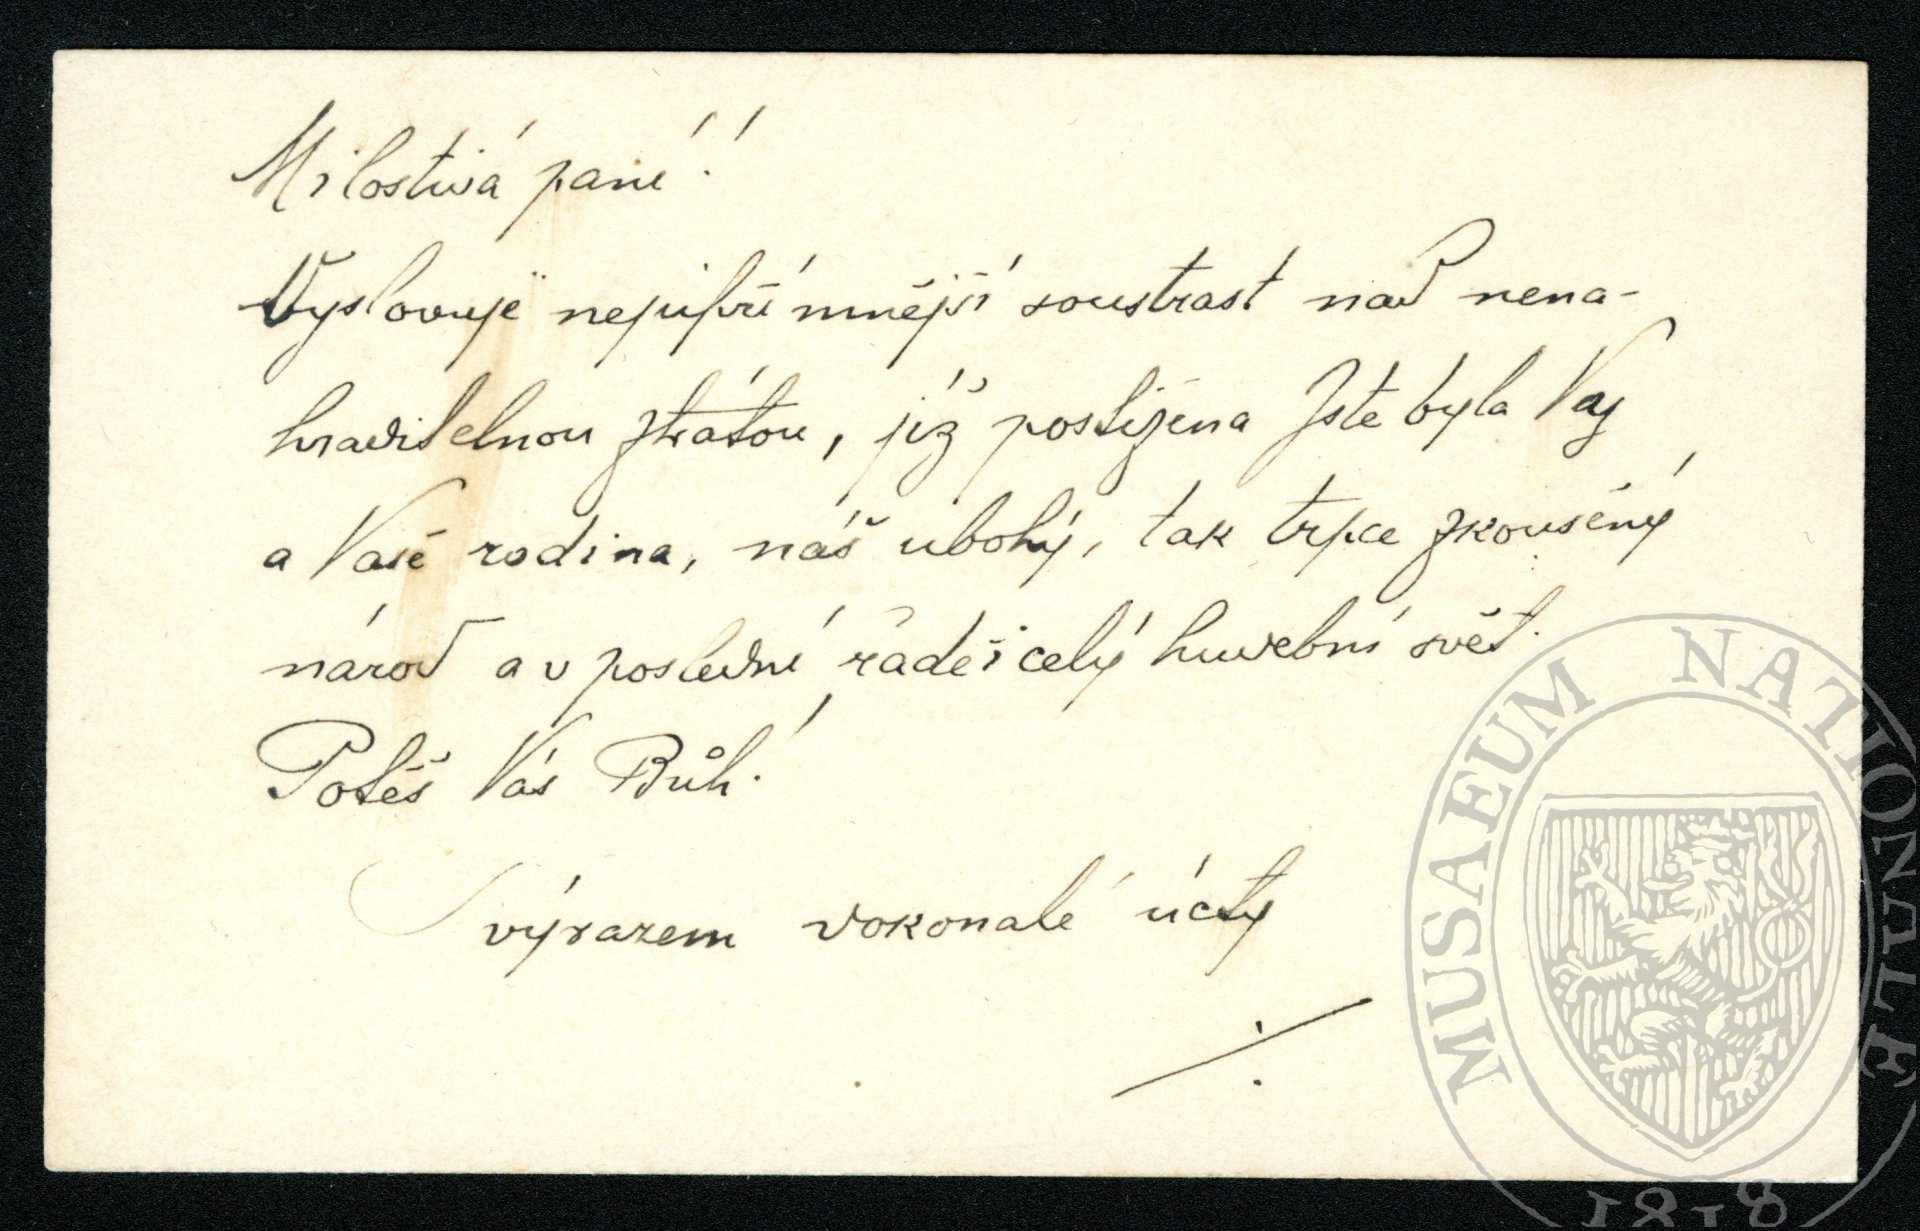 Milostivá paní!
Vyslovuje nejupřímnější soustrast nad nena-
hraditelnou ztrátou, jíž postižena Jste byla Vy
a Vaše rodina, náš ubohý, tak trpce zkoušený
národ a v poslední řadě i celý hudební svět.
Potěš Vás Bůh!
S výrazem dokonalé úcty
MUSAEUM NATIONALE
1818